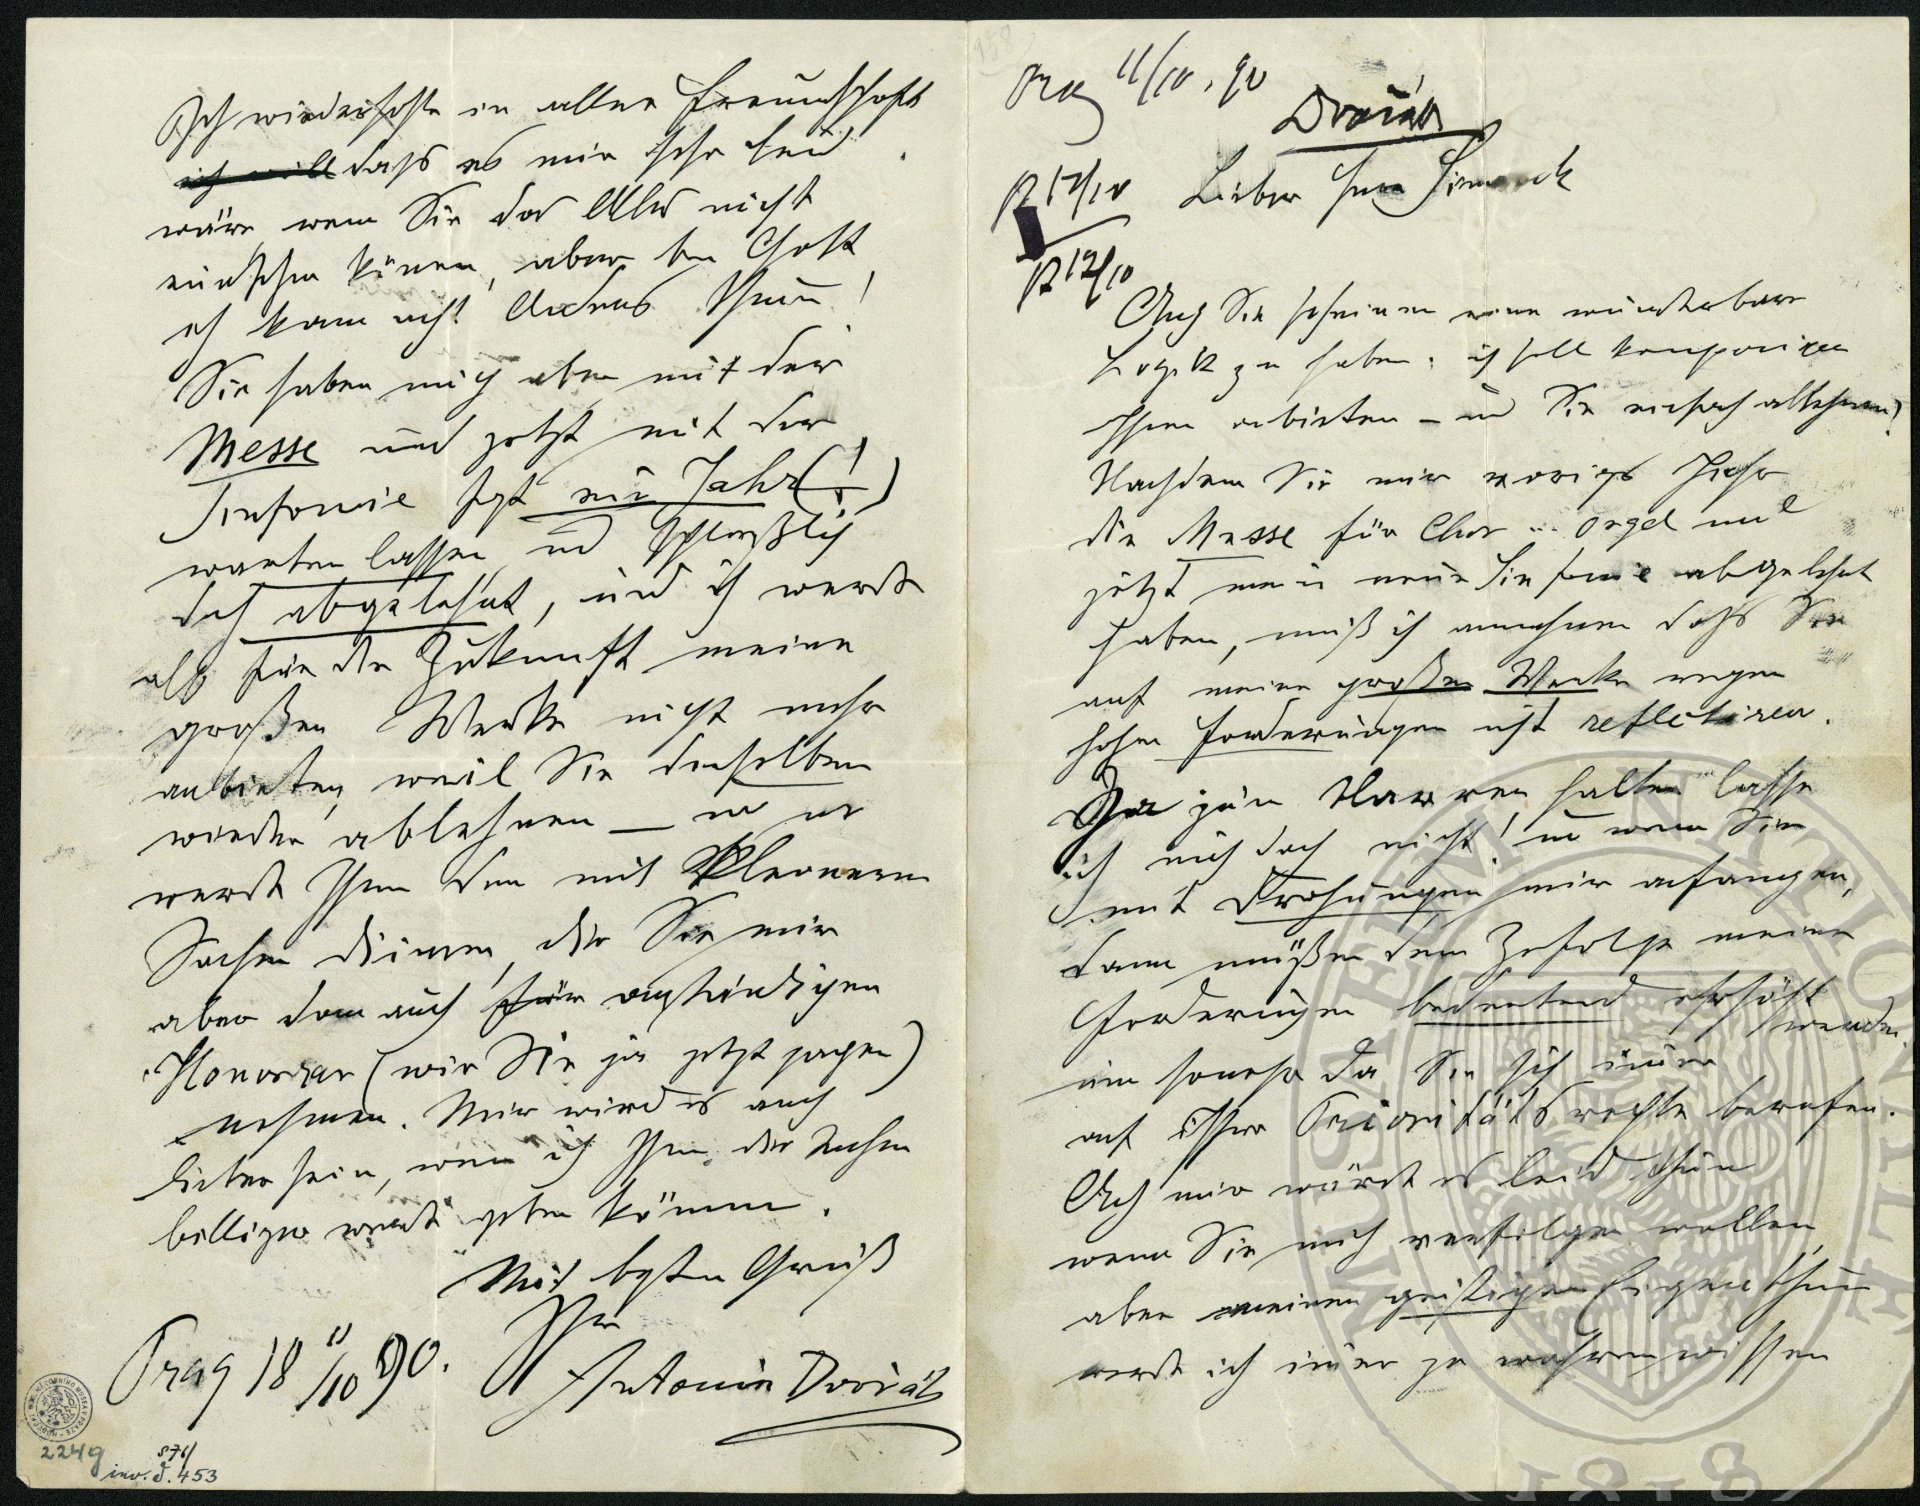 Prag 11/10. 90
Dvořák
R 12/10
B 12/10
Lieber Herr Simrock
Auch Sie scheinen eine wunderbare
Logik zu haben: ich soll komponiren
Ihnen anbieten – und Sie einfach ablehnen!
Nachdem Sie mir voriges Jahr
die Messe für Chor u. Orgel und
jetzt meine neue Sinfonie abgelehnt
haben, muß ich annehmen daß Sie
auf meine großen Werke wegen
hohen Forderungen nicht reflectiren.
zum Narren halten lasse
ich mich doch nicht! und wenn Sie
mit Drohungen mir anfangen,
dann müßen dem Zufolge meine
Forderungen bedeutend erhöht
werden
um so mehr da Sie sich immer
auf Ihre Prioritätsrechte berufen.
Auch mir würde es leid thun
wenn Sie mich verfolgen wollen,
aber meinen geistigen Eigenthum
werde ich immer zu wahren wissen
Ich wiederhohle in aller Freundschaft
ich will daß es mir sehr leid
wäre, wenn Sie das Alles nicht
einsehen können, aber bei Gott
ich kann nicht Anders thun!
Sie haben mich aber mit der
Messe und jetzt mit der
Sinfonie fast ein Jahr (!)
warten lassen und schließlich
doch abgelehnt, und ich werde
also für die Zukunft meine
großen Werke nicht mehr
anbieten, weil Sie dieselben
wieder ablehnen –
werde Ihnen dann mit kleineren
Sachen dienen, die Sie mir
aber dann auch für anständigen
Honorar (wie Sie ja jetzt sagen)
nehmen. Mir wird es auch
lieber sein, wenn ich Ihnen die Sachen
billiger werde geben können.
Mit besten Gruß
Ihr
Antonín Dvořák
Prag 18 11/10 90.
2249
876/
inv. č. 453
MUSAEUM NATIONALE
1818